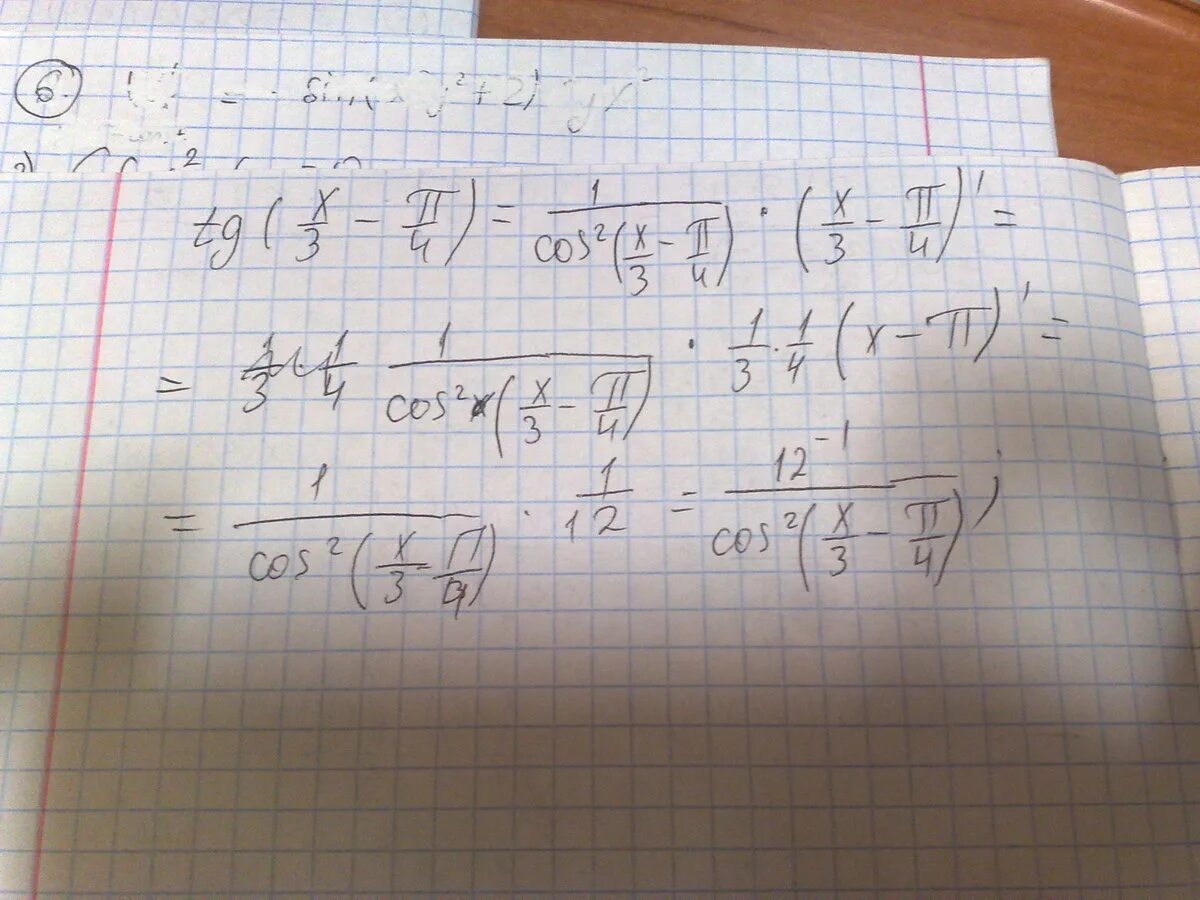 6 = - sin( y²+2) x²
tg(x/3 - π/4) = 1/cos²(x/3 - π/4) · (x/3 - π/4)' =
= 1/cos²(x/3 - π/4) · 1/3 · 1/4 (x - π)' =
= 1/cos²(x/3 - π/4) · 1/12 = 12⁻¹/cos²(x/3 - π/4);